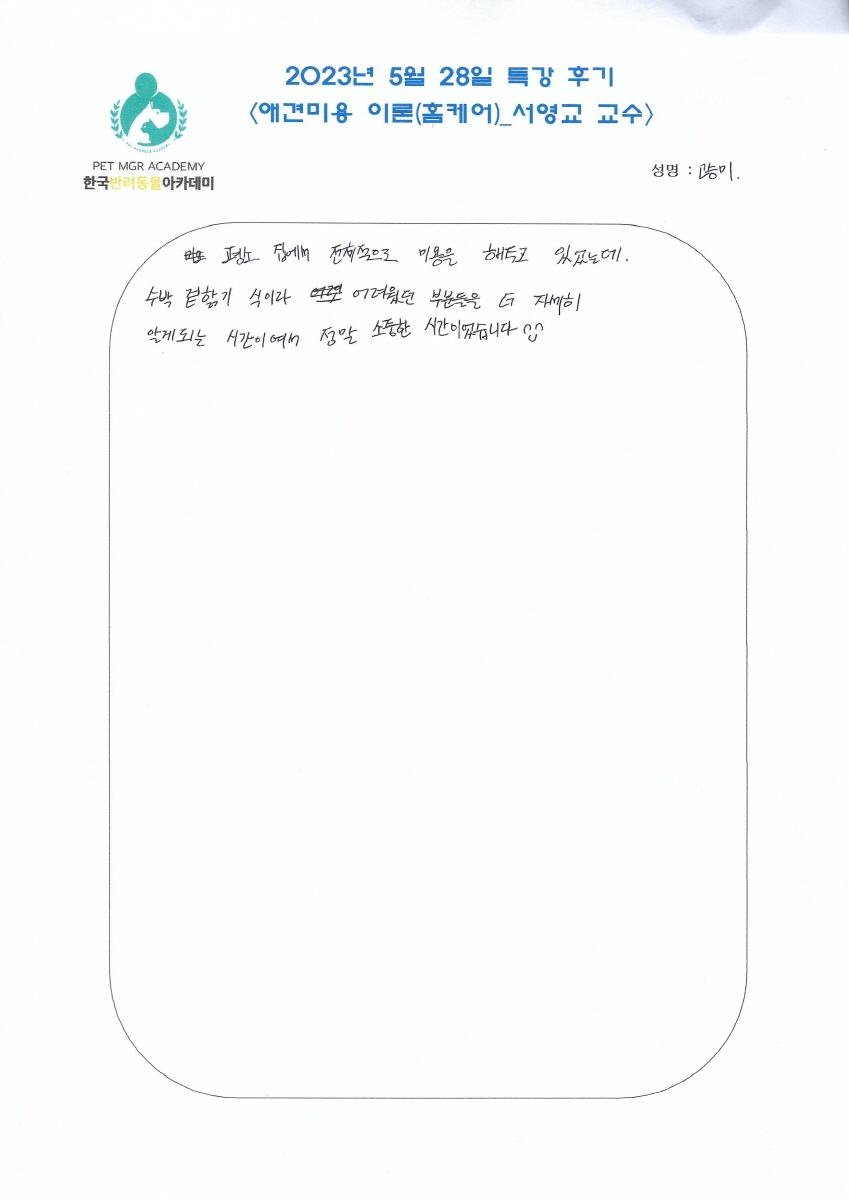 2023년 5월 28일 특강 후기
<애견미용 이론(홈케어)_서영교 교수>
PET MGR ACADEMY
한국반려동물아카데미
성명 : 고승미.
평소 집에서 전체적으로 미용을 해주고 있었는데.
수박 겉핥기 식이라 어려웠던 부분들을 더 자세히
알게되는 시간이여서 정말 소중한 시간이었습니다